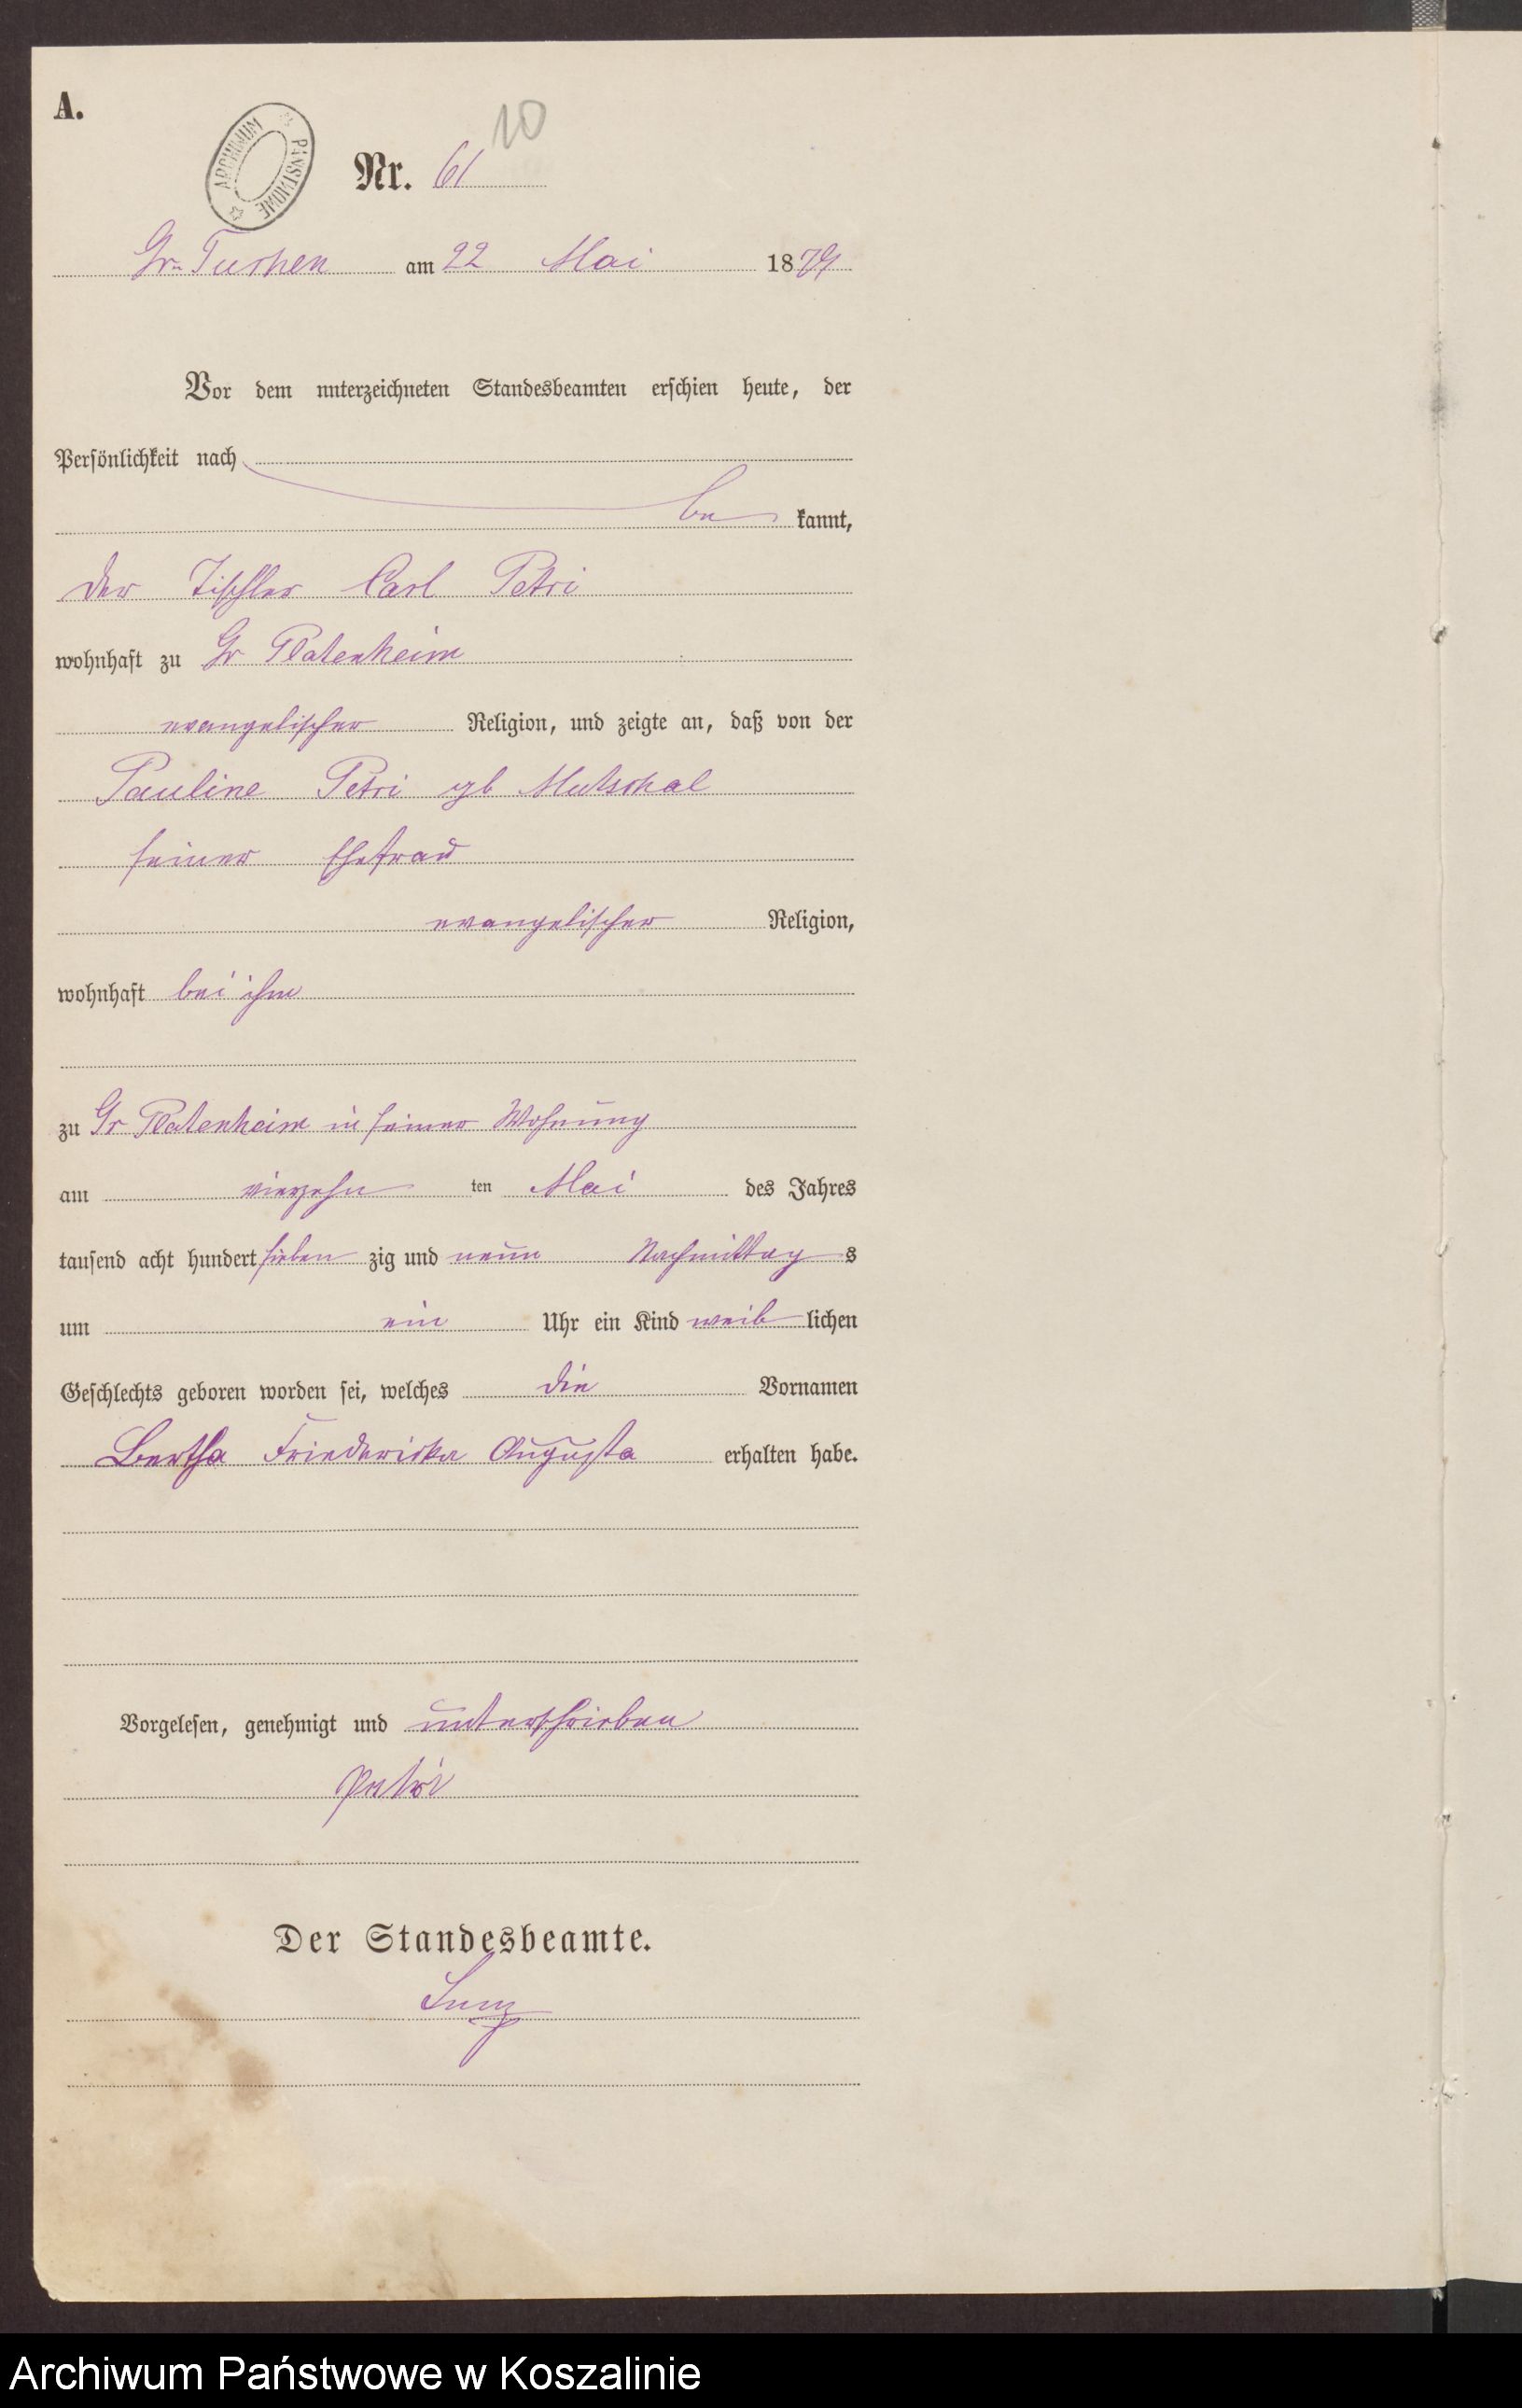 A.
10
ARCHIWUM PAŃSTWOWE
Nr. 61
Gr. Tuchen am 22 Mai 1879
Vor dem unterzeichneten Standesbeamten erschien heute, der
Persönlichkeit nach
be kannt,
der Tischler Carl Petri
wohnhaft zu Gr Platenheim
evangelischer Religion, und zeigte an, daß von der
Pauline Petri gb Mutschal
seiner Ehefrau
evangelischer Religion,
wohnhaft bei ihm
zu Gr Platenheim in seiner Wohnung
am vierzehn ten Mai des Jahres
tausend acht hundert sieben zig und neun Nachmittag s
um ein Uhr ein Kind weib lichen
Geschlechts geboren worden sei, welches die Vornamen
Bertha Friedericke Augusta erhalten habe.
Vorgelesen, genehmigt und unterschrieben
Petri
Der Standesbeamte.
Archiwum Państwowe w Koszalinie